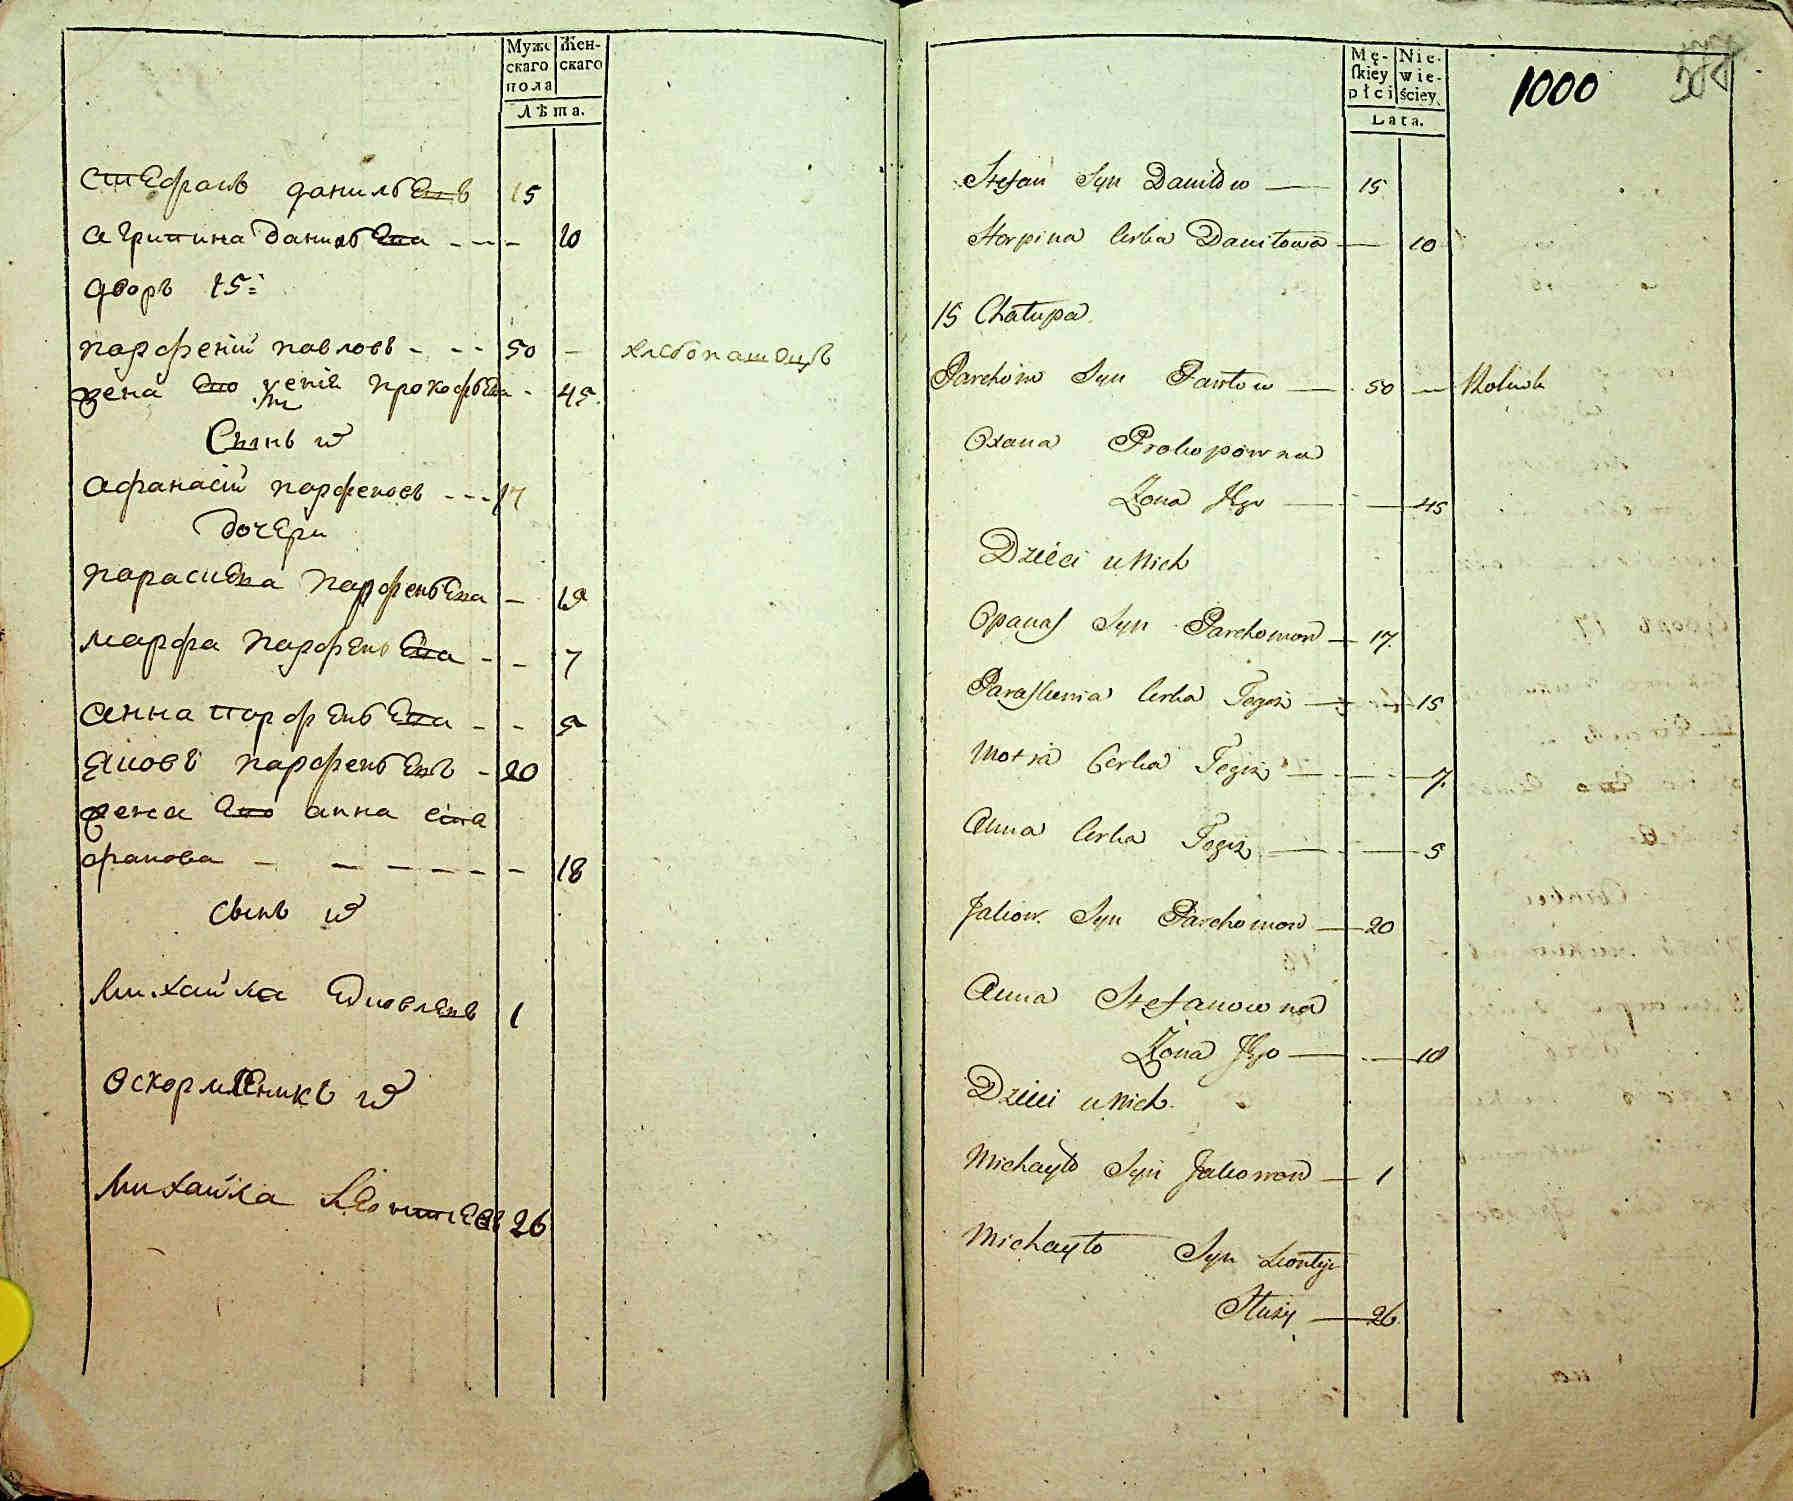 Мужс
скаго
пола
Жен-
скаго
Лѣта.
Стефанъ данилѣевъ 15
агрипина данилѣева - - - 10
дворъ 15:
парфеній павловъ - - - 50 — хлебопашецъ
жена его ксенія прокофьева - 45
Сынъ и
афанасій парфеновъ - - - 17
дочери
парасиева парфенѣева — 15
марфа парфенѣева - - 7
анна парфенѣева - - 5
яковъ парфенѣевъ - 20
жена его анна сте
фанова - - - - - - 18
сынъ и
михайла яковлевъ 1
оскормленикъ и
михайла Леонтиевъ 26
Mę-
skiey
płci
Nie-
wie-
ściey
Lata.
1000
Stefan Syn Daniłow — 15
Horpina Curka Daniłowa — 10
15 Chałupa
Parchom Syn Pawłow — 50 — Rolnik
Oxana Prokopowna
Żona Jego — 45
Dzieci u Nich
Opanas Syn Parchomow — 17
Paraskewia Curka Tegoż — 15
Motra Curka Tegoż — 7
Anna Curka Tegoż — 5
Jakow Syn Parchomow — 20
Anna Stefanowna
Żona Jego — 18
Dzieci u Nich
Michayło Syn Jakowow — 1
Michayło Syn Leontije
Służy — 26